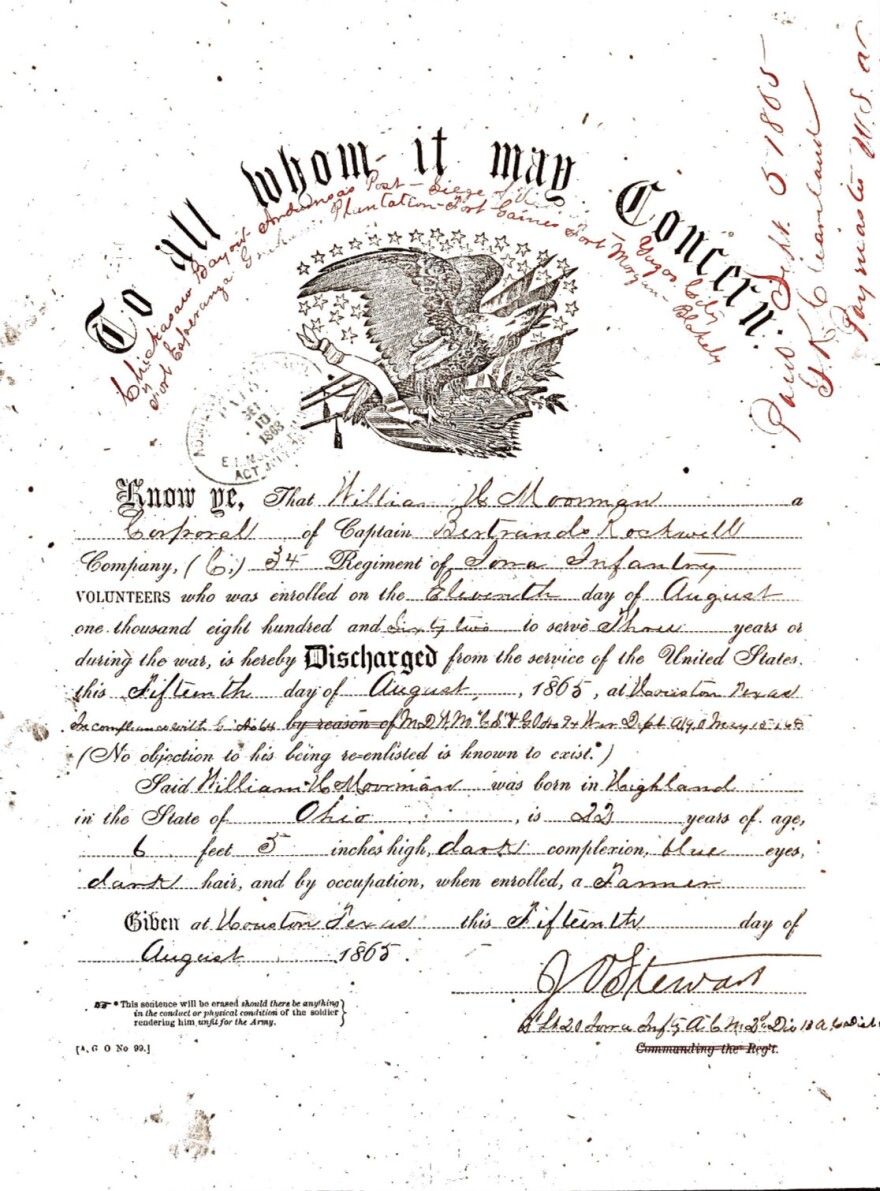 To all whom it may Concern:
Chickasaw Bayou Arkansas Post - Siege of - Yazoo City
Fort Esperanza Plantation - Fort Gaines Fort Morgan - Blakely
Paid Sept 5 1865
Paymaster U.S.
PAID
SEP
10
1868
ACT
Know ye, That William H Moorman a
Corporal of Captain Bertrand Rockwell
Company, (C.) 34 Regiment of Iowa Infantry
VOLUNTEERS who was enrolled on the Eleventh day of August
one thousand eight hundred and Sixty two to serve Three years or
during the war, is hereby Discharged from the service of the United States.
this Fifteenth day of August, 1865, at Houston Texas
In compliance with by reason of War Dept
(No objection to his being re-enlisted is known to exist.*)
Said William H Moorman was born in Highland
in the State of Ohio, is 22 years of age,
6 feet 5 inches high, dark complexion, blue eyes,
dark hair, and by occupation, when enrolled, a Farmer
Given at Houston Texas this Fifteenth day of
August 1865.
J O Stewart
* This sentence will be erased should there be anything
in the conduct or physical condition of the soldier
rendering him unfit for the Army.
Lt 20 Iowa Infty A.C.M. 2d Div 13 A.C.
[A. G. O No 99.]
Commanding the Reg't.